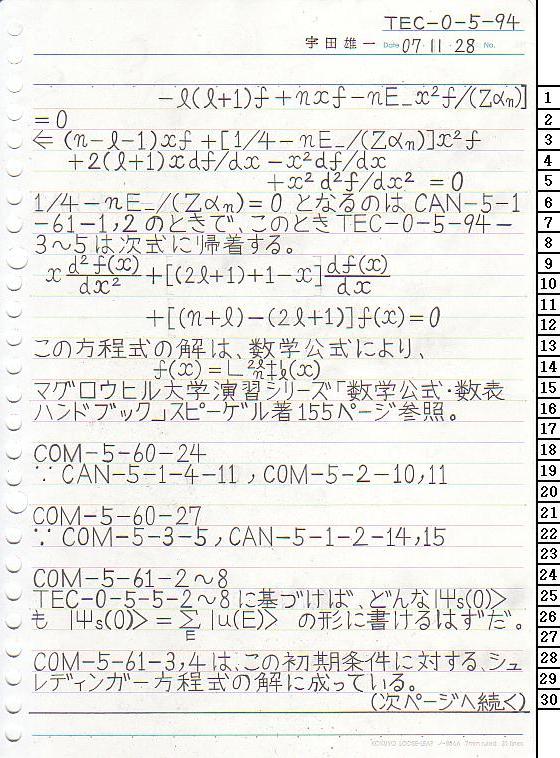 TEC-0-5-94
宇田雄一 Date 07・11・28 No.
-ℓ(ℓ+1)f+nxf-nE_x²f/(Zαn)]
=0
⇐ (n-ℓ-1)xf+[1/4-nE_/(Zαn)]x²f
+2(ℓ+1)xdf/dx-x²df/dx
+x²d²f/dx²=0
1/4-nE_/(Zαn)=0 となるのは CAN-5-1
-61-1,2 のときで、このとき TEC-0-5-94-
3~5は次式に帰着する。
x d²f(x)/dx² +[(2ℓ+1)+1-x] df(x)/dx
+[(n+ℓ)-(2ℓ+1)]f(x)=0
この方程式の解は、数学公式により、
f(x)=L²ℓ‡¹n+ℓ(x)
マグロウヒル大学演習シリーズ「数学公式・数表
ハンドブック」スピーゲル著155ページ参照。
COM-5-60-24
∵ CAN-5-1-4-11, COM-5-2-10,11
COM-5-60-27
∵ COM-5-3-5, CAN-5-1-2-14,15
COM-5-61-2~8
TEC-0-5-5-2~8に基づけば、どんな|Ψs(0)>
も |Ψs(0)>=Σ_E |u(E)> の形に書けるはずだ。
COM-5-61-3,4は、この初期条件に対する、シュ
レディンガー方程式の解に成っている。
(次ページへ続く)
KOKUYO LOOSE-LEAF 7mm ruled
1
2
3
4
5
6
7
8
9
10
11
12
13
14
15
16
17
18
19
20
21
22
23
24
25
26
27
28
29
30